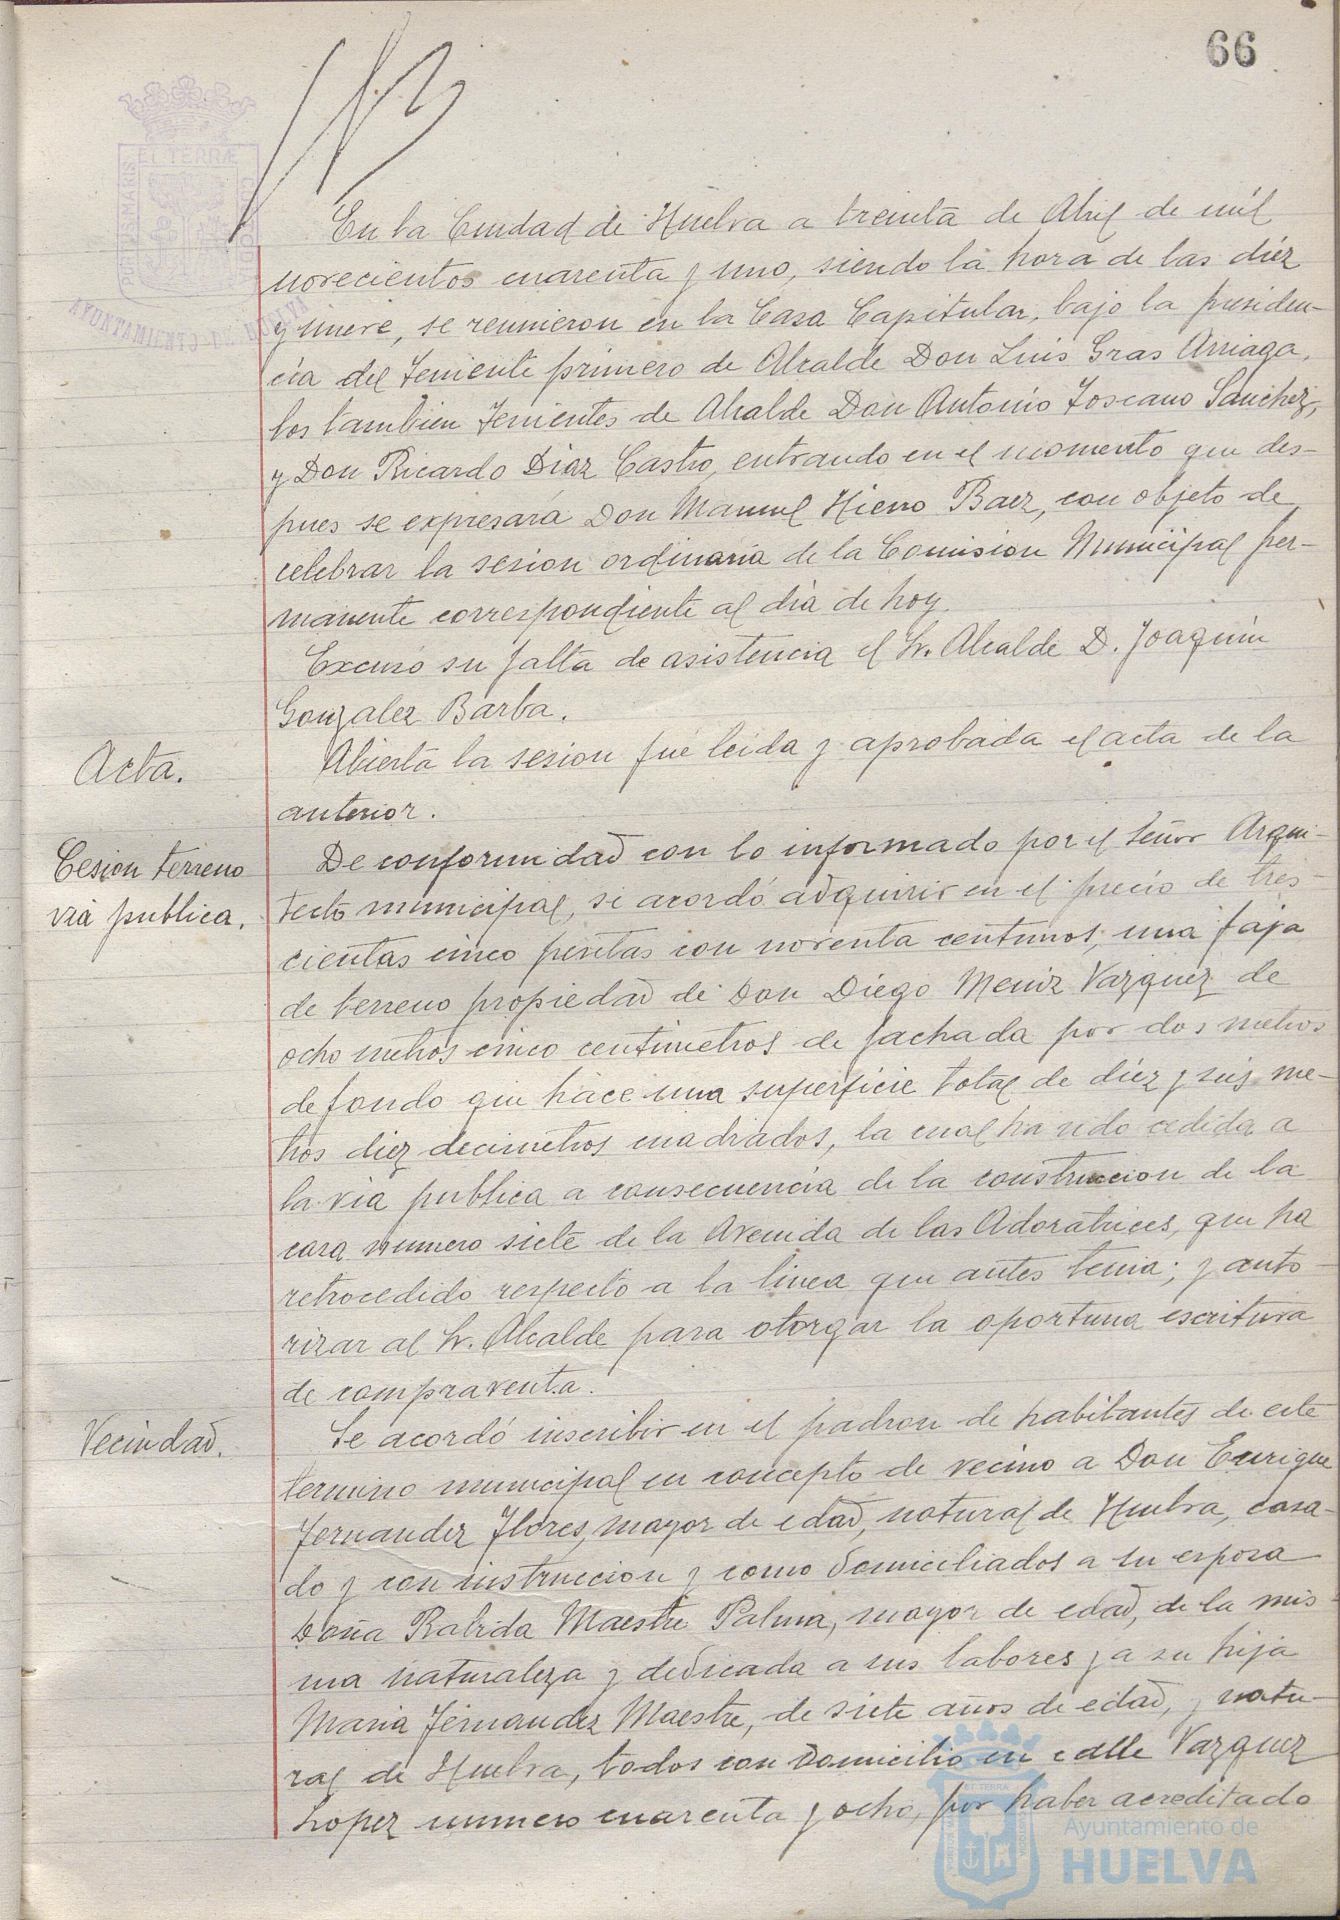 66
PORTUS MARIS ET TERRÆ CUSTODIA
AYUNTAMIENTO DE HUELVA
En la Ciudad de Huelva a treinta de Abril de mil
novecientos cuarenta y uno, siendo la hora de las diez
y nueve, se reunieron en la Casa Capitular, bajo la presiden-
cia del Teniente primero de Alcalde Don Luis Gras Arriaga,
los tambien Tenientes de Alcalde Don Antonio Toscano Sanchez,
y Don Ricardo Diaz Castro, entrando en el momento que des-
pues se expresará Don Manuel Hierro Baez, con objeto de
celebrar la sesion ordinaria de la Comision Municipal per-
manente correspondiente al dia de hoy.
Excusó su falta de asistencia el Sr. Alcalde D. Joaquin
Gonzalez Barba.
Acta.
Abierta la sesion fué leida y aprobada el acta de la
anterior.
Cesion terreno
via publica.
De conformidad con lo informado por el Señor Arqui-
tecto municipal, se acordó adquirir en el precio de tres-
cientas cinco pesetas con noventa centimos, una faja
de terreno propiedad de Don Diego Meniz Vazquez de
ocho metros cinco centimetros de fachada por dos metros
de fondo que hace una superficie total de diez y seis me-
tros diez decimetros cuadrados, la cual ha sido cedida a
la via publica a consecuencia de la construccion de la
casa numero siete de la Avenida de las Adoratrices, que ha
retrocedido respecto a la linea que antes tenia; y auto-
rizar al Sr. Alcalde para otorgar la oportuna escritura
de compraventa.
Vecindad.
Se acordó inscribir en el padron de habitantes de este
termino municipal en concepto de vecino a Don Enrique
Fernandez Flores, mayor de edad, natural de Huelva, casa-
do y con instruccion y como domiciliados a su esposa
Doña Rabida Maestre Palma, mayor de edad, de la mis-
ma naturaleza y dedicada a sus labores y a su hija
Maria Fernandez Maestre, de siete años de edad, y natu-
ral de Huelva, todos con domicilio en calle Vazquez
Lopez numero cuarenta y ocho, por haber acreditado
Ayuntamiento de
HUELVA